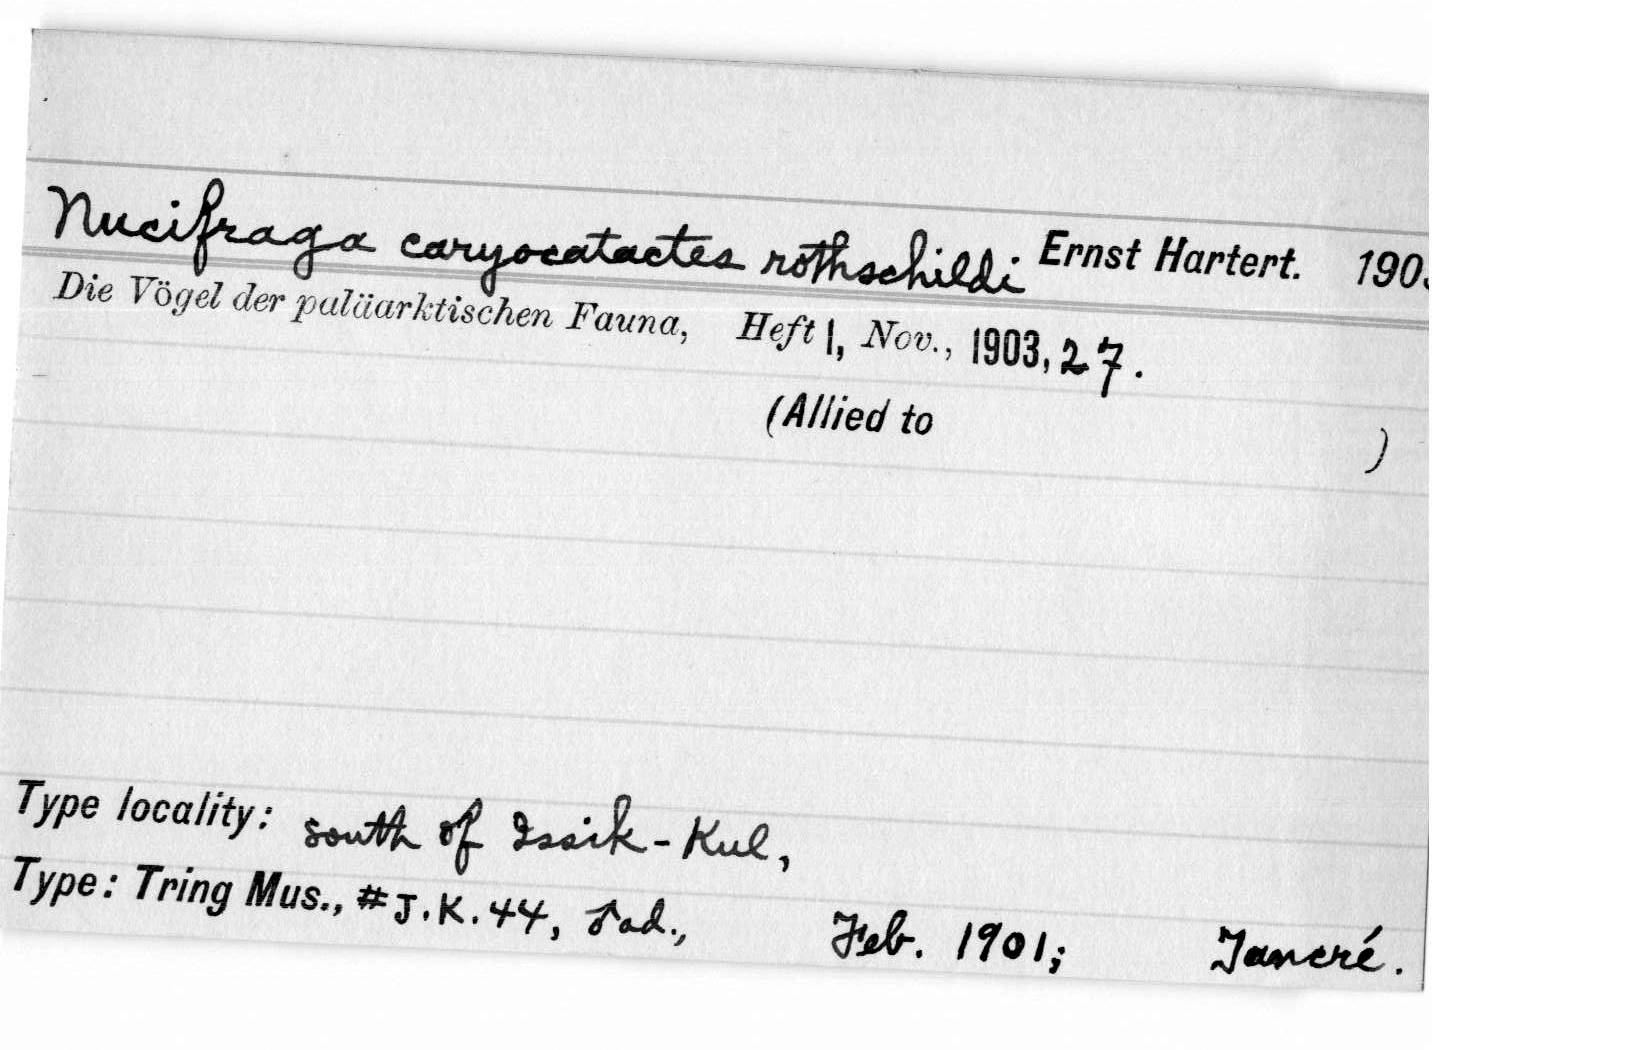 Nucifraga caryocatactes rothschildi Ernst Hartert. 190
Die Vögel der paläarktischen Fauna, Heft 1, Nov., 1903, 27.
(Allied to )
Type locality: south of Issik-Kul,
Type: Tring Mus., #J.K.44, ♂ad., Feb. 1901; Tancré.